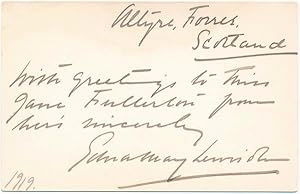 Altyre, Forres,
Scotland
With greetings to Miss
Jane Fullerton from
hers sincerely
1919.